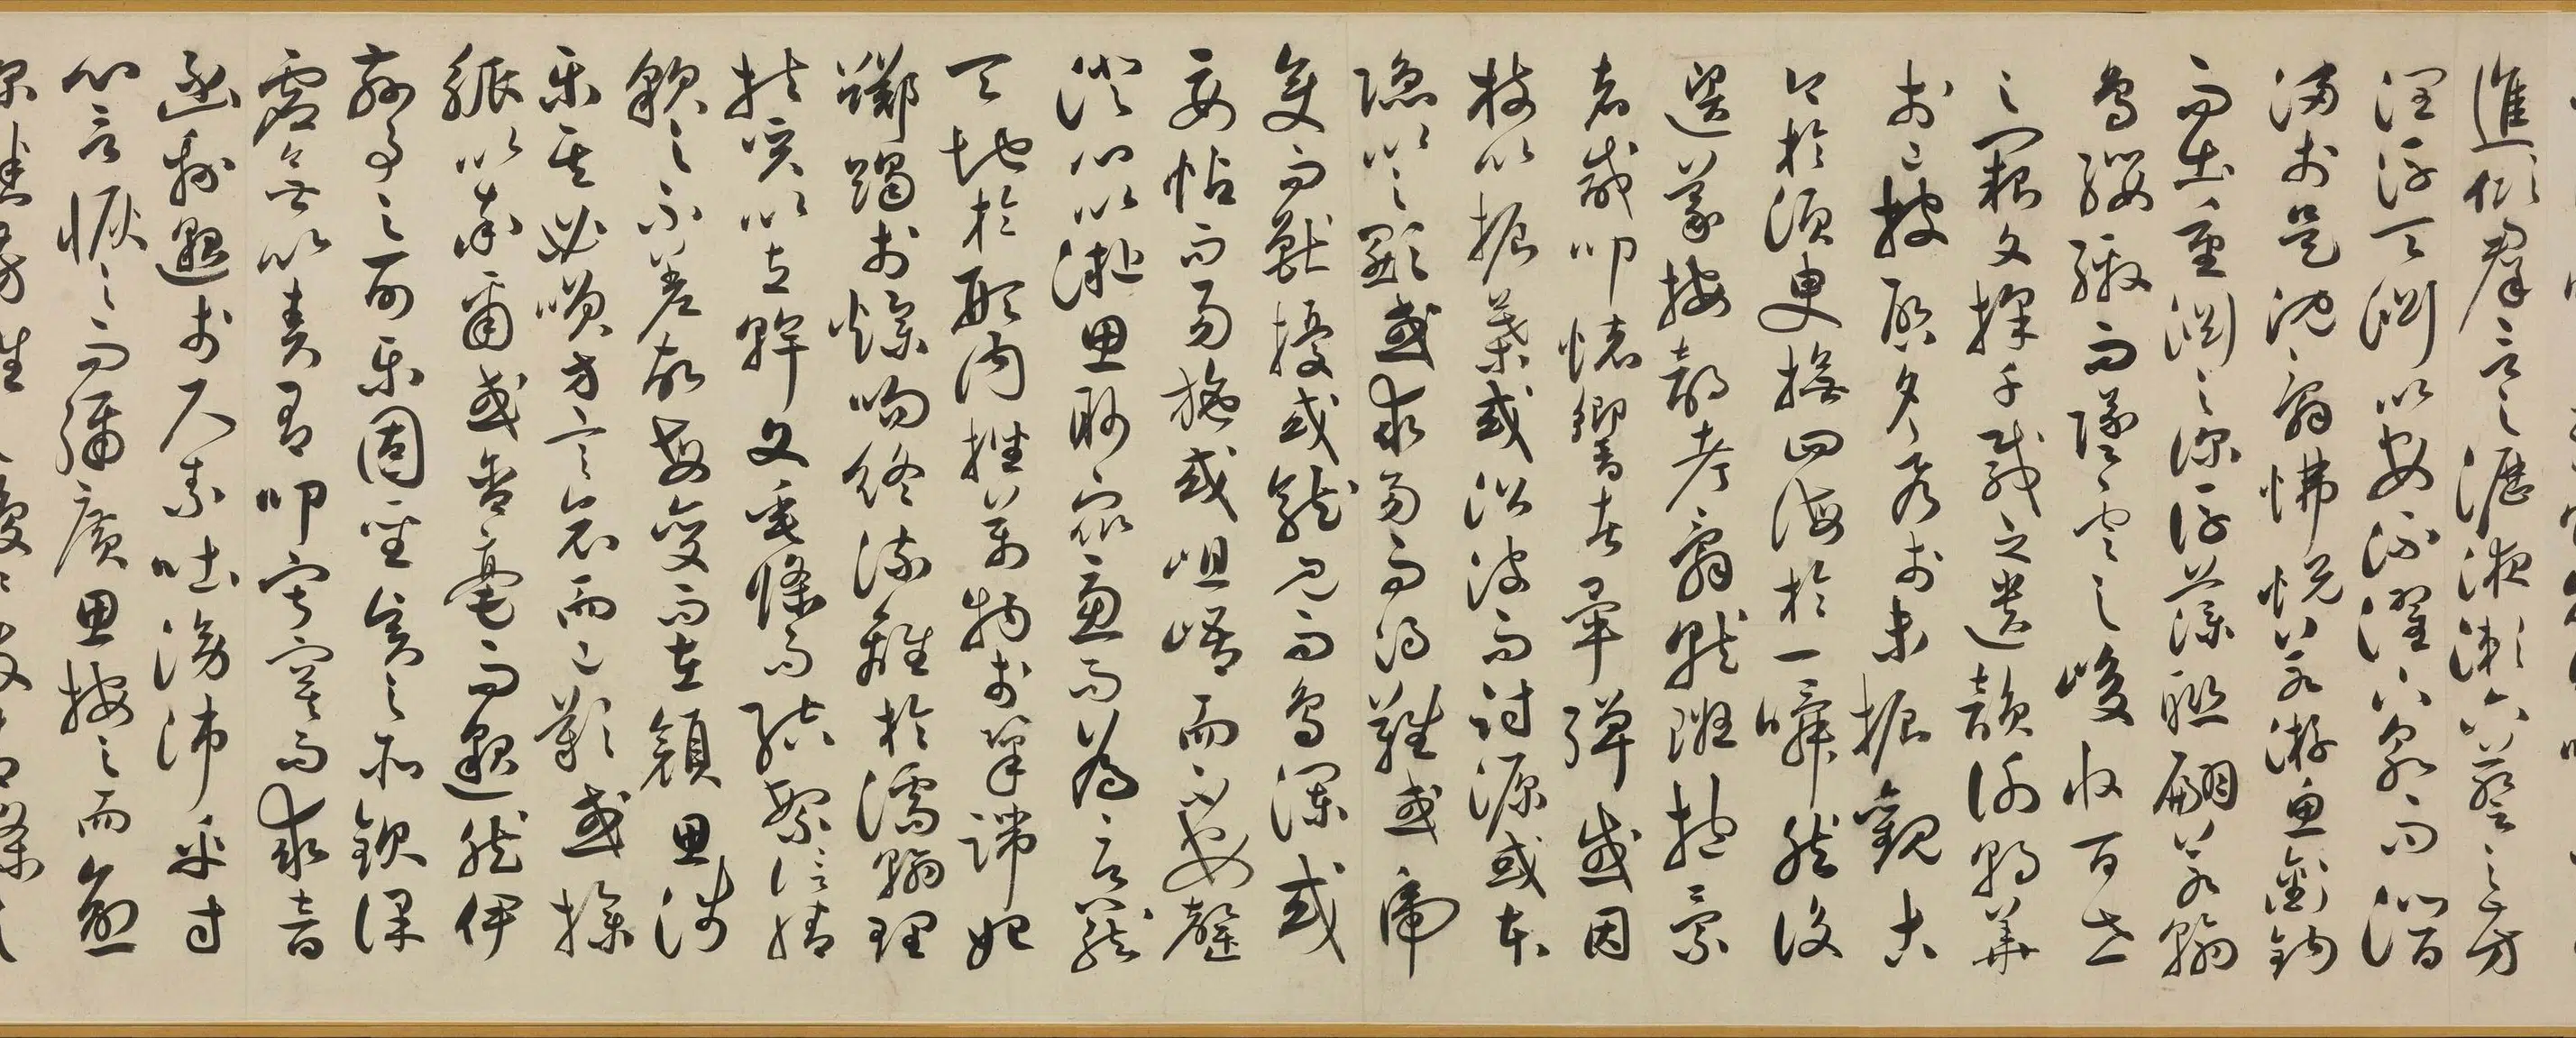 進傾群言之瀝液漱六藝之芳
潤浮天淵以安流濯下泉而潛
浸於是沈辭怫悅若游魚銜鉤
而出重淵之深浮藻聯翩若翰
鳥纓繳而墜雲之峻收百世
之闕文採千載之遺韻謝朝華
於已披啟夕秀於未振觀古
今於須臾撫四海於一瞬然後
選義按部考辭就班抱景
者咸叩懷響者畢彈或因
枝以振葉或沿波而討源或本
隱以之顯或求易而得難或虎
變而獸擾或龍見而鳥瀾或
妥帖而易施或岨峿而不安罄
澄心以凝思眇眾慮而為言籠
天地於形內挫萬物於筆端始
躑躅於燥吻終流離於濡翰理
扶質以立幹文垂條而結繁信情
貌之不差故每變而在顏思涉
樂其必笑方言哀而已歎或操
觚以率爾或含毫而邈然伊
茲事之可樂固聖賢之所欽課
虛無以責有叩寂寞而求音
函緜邈於尺素吐滂沛乎寸
心言恢之而彌廣思按之而愈